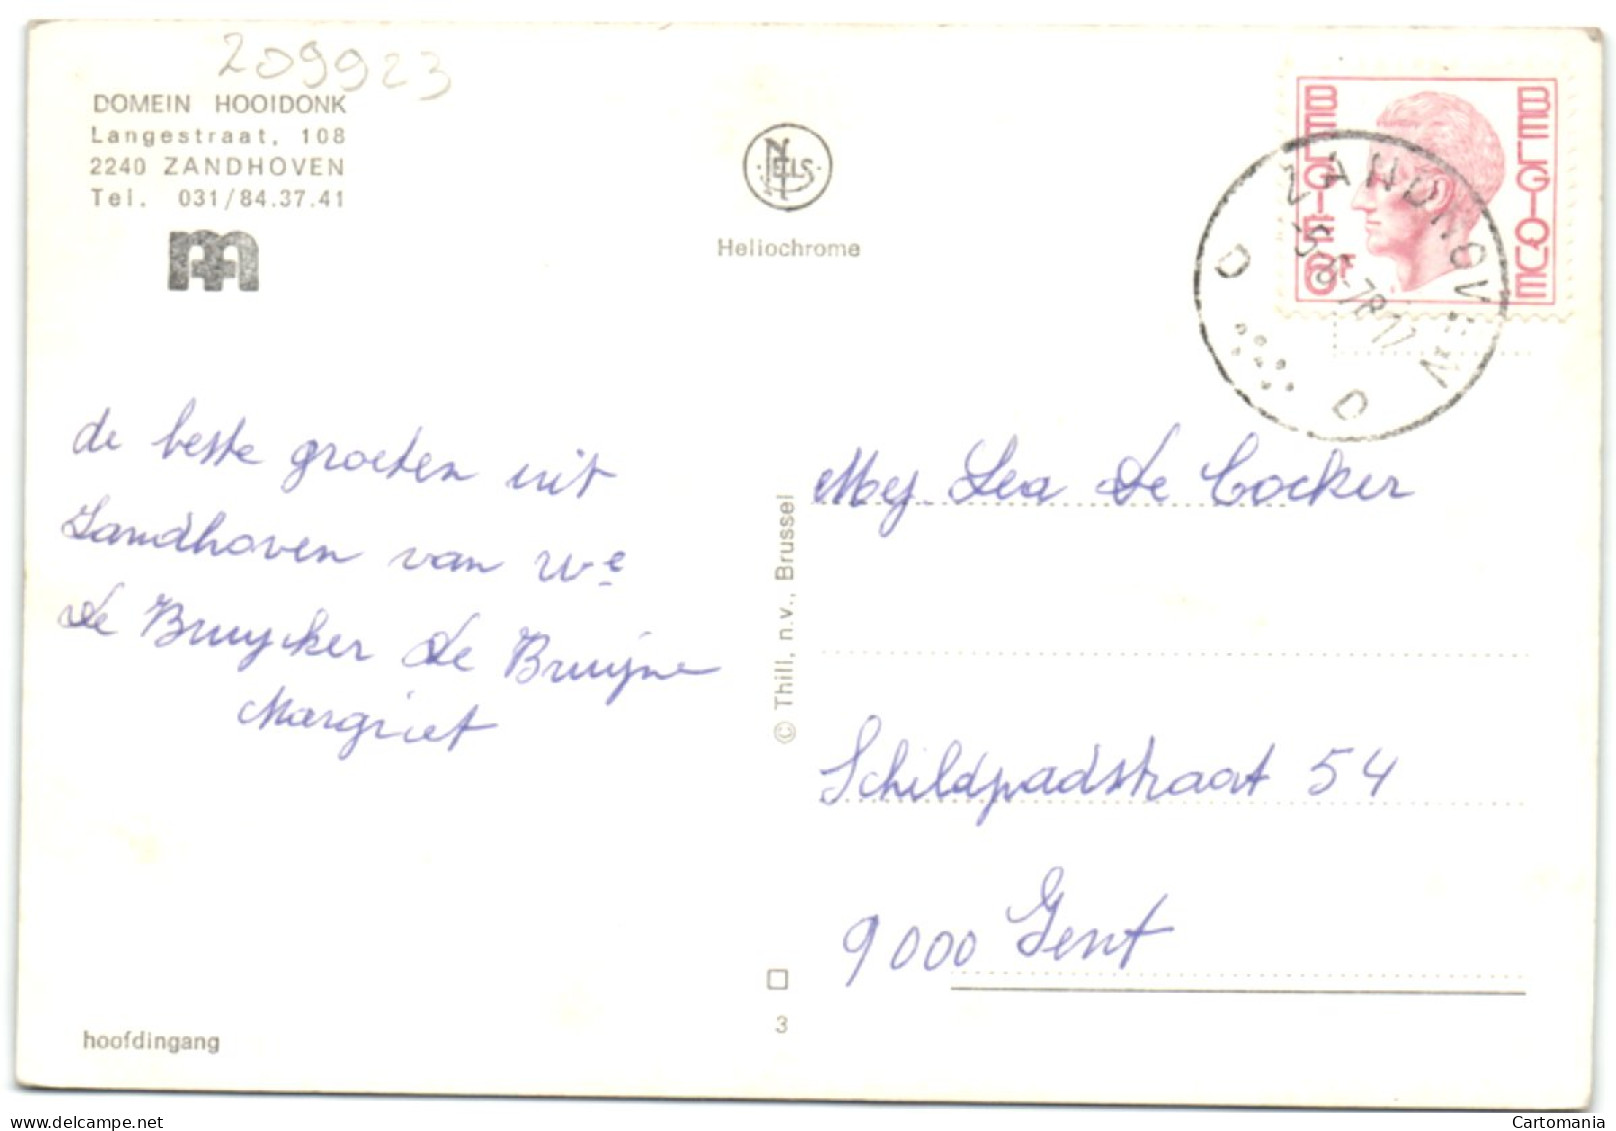 209923
DOMEIN HOOIDONK
Langestraat, 108
2240 ZANDHOVEN
Tel. 031/84.37.41
NELS
Heliochrome
BELGIE
6F
BELGIQUE
ZANDHOVEN
D D
de beste groeten uit
Zandhoven van We
De Bruycker De Bruijne
Margriet
© Thill, n.v., Brussel
Mej. Lea De Cocker
Schildpadstraat 54
9000 Gent
3
hoofdingang
Cartomania